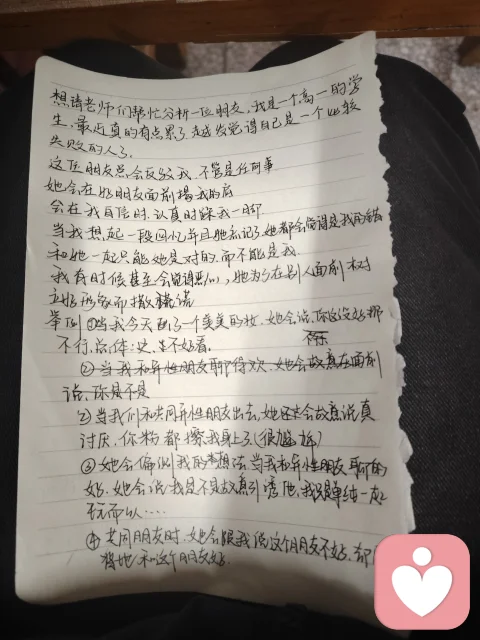 想请老师们帮忙分析一位朋友,我是一个高一的学
生,最近真的有点累了,越发觉得自己是一个比较
失败的人了,
这位朋友总会反驳我,不管是任何事
她会在好朋友面前揭我的底
会在我自信时、认真时踩我一脚
当我想起一段回忆并且她忘记了,她都会觉得是我的错
和她一起只能她是对的,而不能是我
我有时候甚至会觉得恶心,她为了在别人面前树
立好形象而撒谎
举例①当我今天画了一个美美的妆,她会说,你这没好那
不行,总体:丑,不好看。
②当我和异性朋友聊得欢,她会故意在面前
说,你是不是
②当我们和共同异性朋友出去,她还会故意说真
讨厌,你粉都擦我身上了(很尴尬)
③她会偏倒我的想法,当我和异性朋友聊的
好,她会说我是不是故意引诱他,我只单纯一起
玩而以……
④共同朋友时,她会跟我说这个朋友不好,却
和这个朋友好